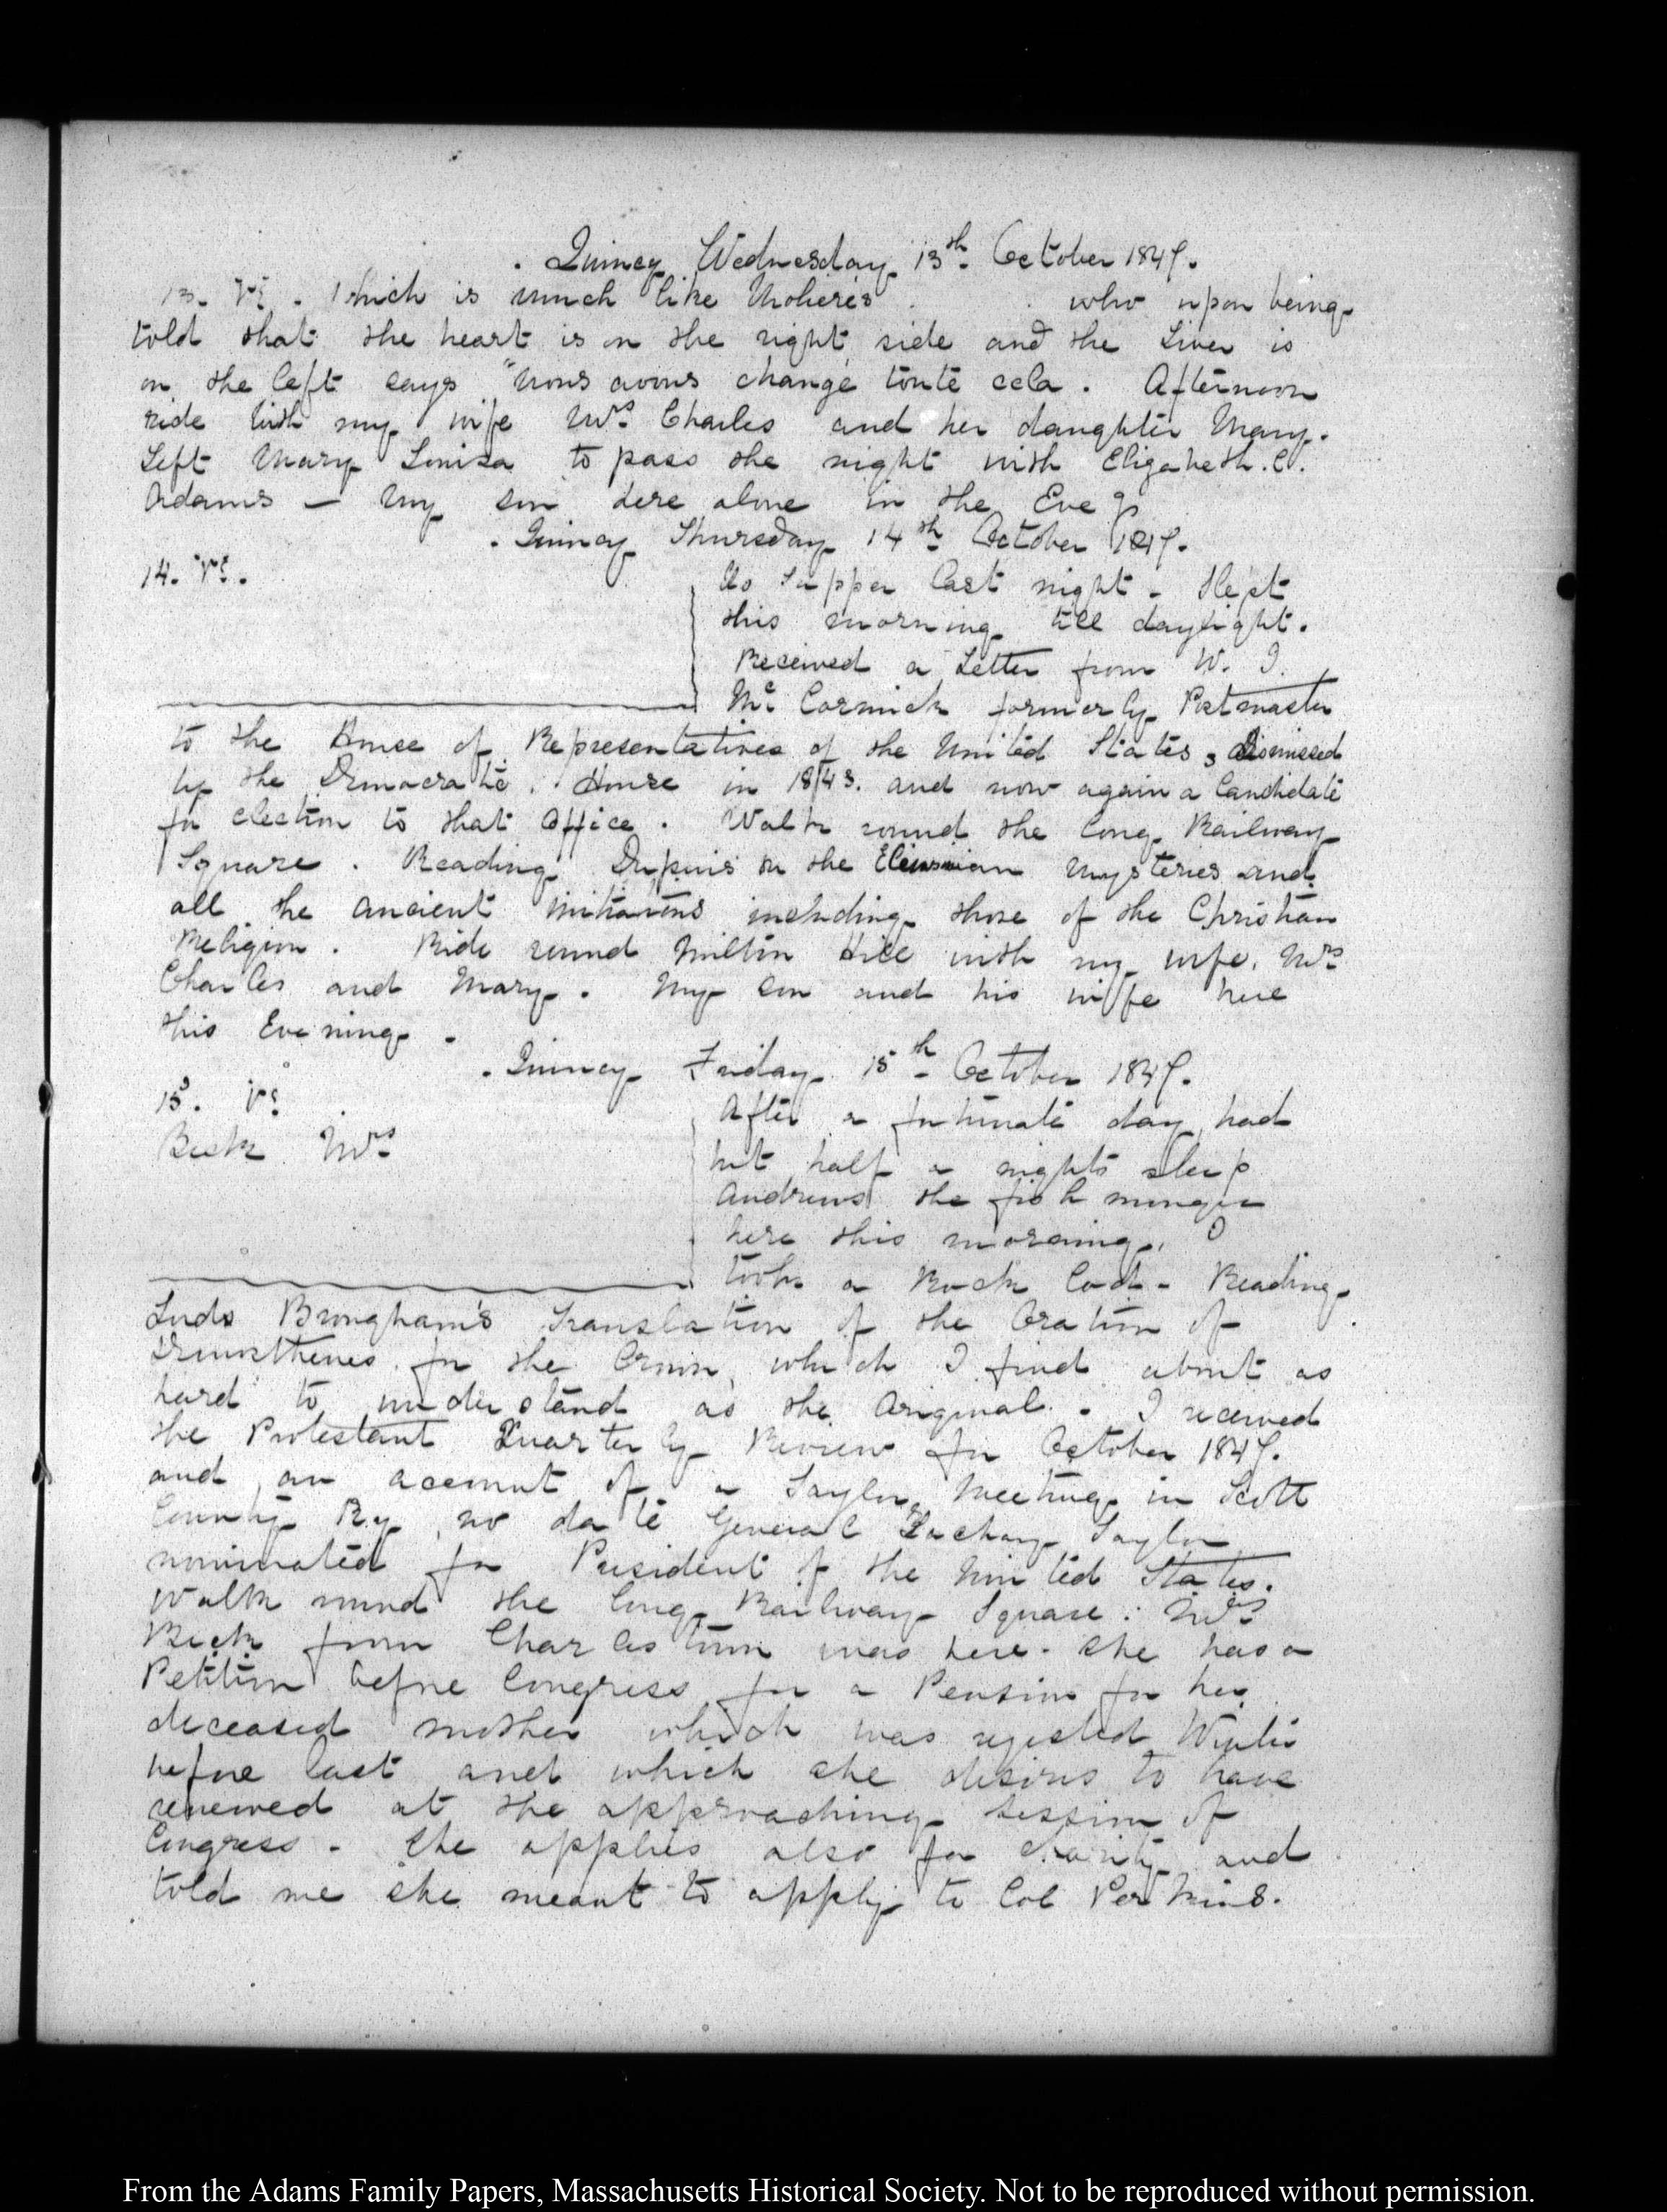 . Quincy Wednesday 13th. October 1847.
13. V:. Which is much like Moliere's who upon being
told that the heart is on the right side and the Liver is
on the left says "nous avons changé toute cela. Afternoon
ride with my wife Mrs. Charles and her daughter Mary.
Left Mary Louisa to pass the night with Elizabeth. C.
Adams — My son here alone in the Eveg
. Quincy Thursday 14th. October 1847.
14. V:.
No Supper last night - Slept
this morning till daylight.
Received a Letter from W. J.
McCormick formerly Postmaster
to the House of Representatives of the United States, dismissed
by the Democratic House in 1843. and now again a Candidate
for election to that Office. Walk round the long Railway
Square. Reading Dupuis on the Eleusinian Mysteries and
all the ancient initiations including those of the Christian
Religion. Ride round Milton Hill with my wife, Mrs.
Charles and Mary. My son and his wife here
this Evening.
. Quincy Friday 15th. October 1847.
15. V:
Beck Mrs.
After a fortunate day, had
but half a nights sleep
Andrews the fish monger
here this morning, I
took a Rock Cod - Reading
Lords Brougham's Translation of the Oration of
Demosthenes for the Crown, which I find about as
hard to understand as the Original. I received
the Protestant Quarterly Review for October 1847.
and an account of a Taylor Meeting in Scott
County Ky, no date General Zachary Taylor
nominated for President of the United States.
Walk round the long Railway Square. Mrs.
Beck from Charlestown was here. She has a
Petition before Congress for a Pension for her
deceased mother which was rejected Winter
before last and which she desires to have
renewed at the approaching session of
Congress. She applies also for charity and
told me she meant to apply to Col Perkins.
From the Adams Family Papers, Massachusetts Historical Society. Not to be reproduced without permission.